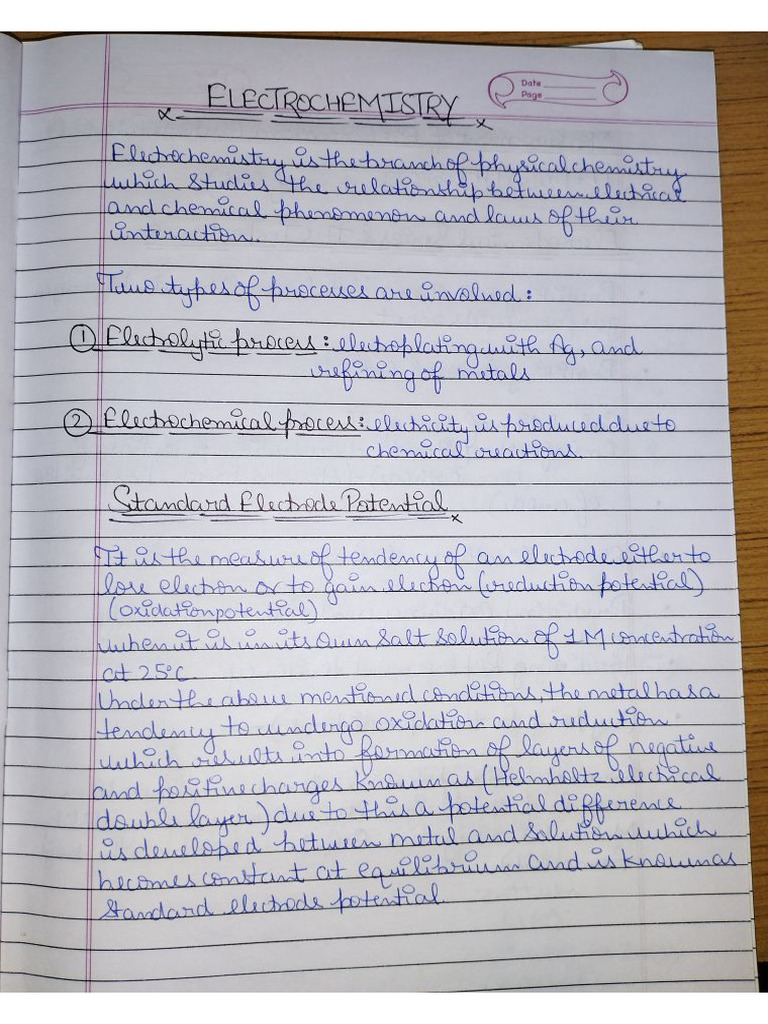 Date
Page
ELECTROCHEMISTRY
Electrochemistry is the branch of physical chemistry
which studies the relationship between electrical
and chemical phenomenon and laws of their
interaction.
Two types of processes are involved :
① Electrolytic process : electroplating with Ag, and
refining of metals
② Electrochemical process : electricity is produced due to
chemical reactions.
Standard Electrode Potential
It is the measure of tendency of an electrode either to
lose electron or to gain electron (reduction potential)
(oxidation potential)
when it is in its own salt solution of 1 M concentration
at 25°C.
Under the above mentioned conditions, the metal has a
tendency to undergo oxidation and reduction
which results into formation of layers of negative
and positive charges known as (Helmholtz electrical
double layer) due to this a potential difference
is developed between metal and solution which
becomes constant at equilibrium and is known as
standard electrode potential.